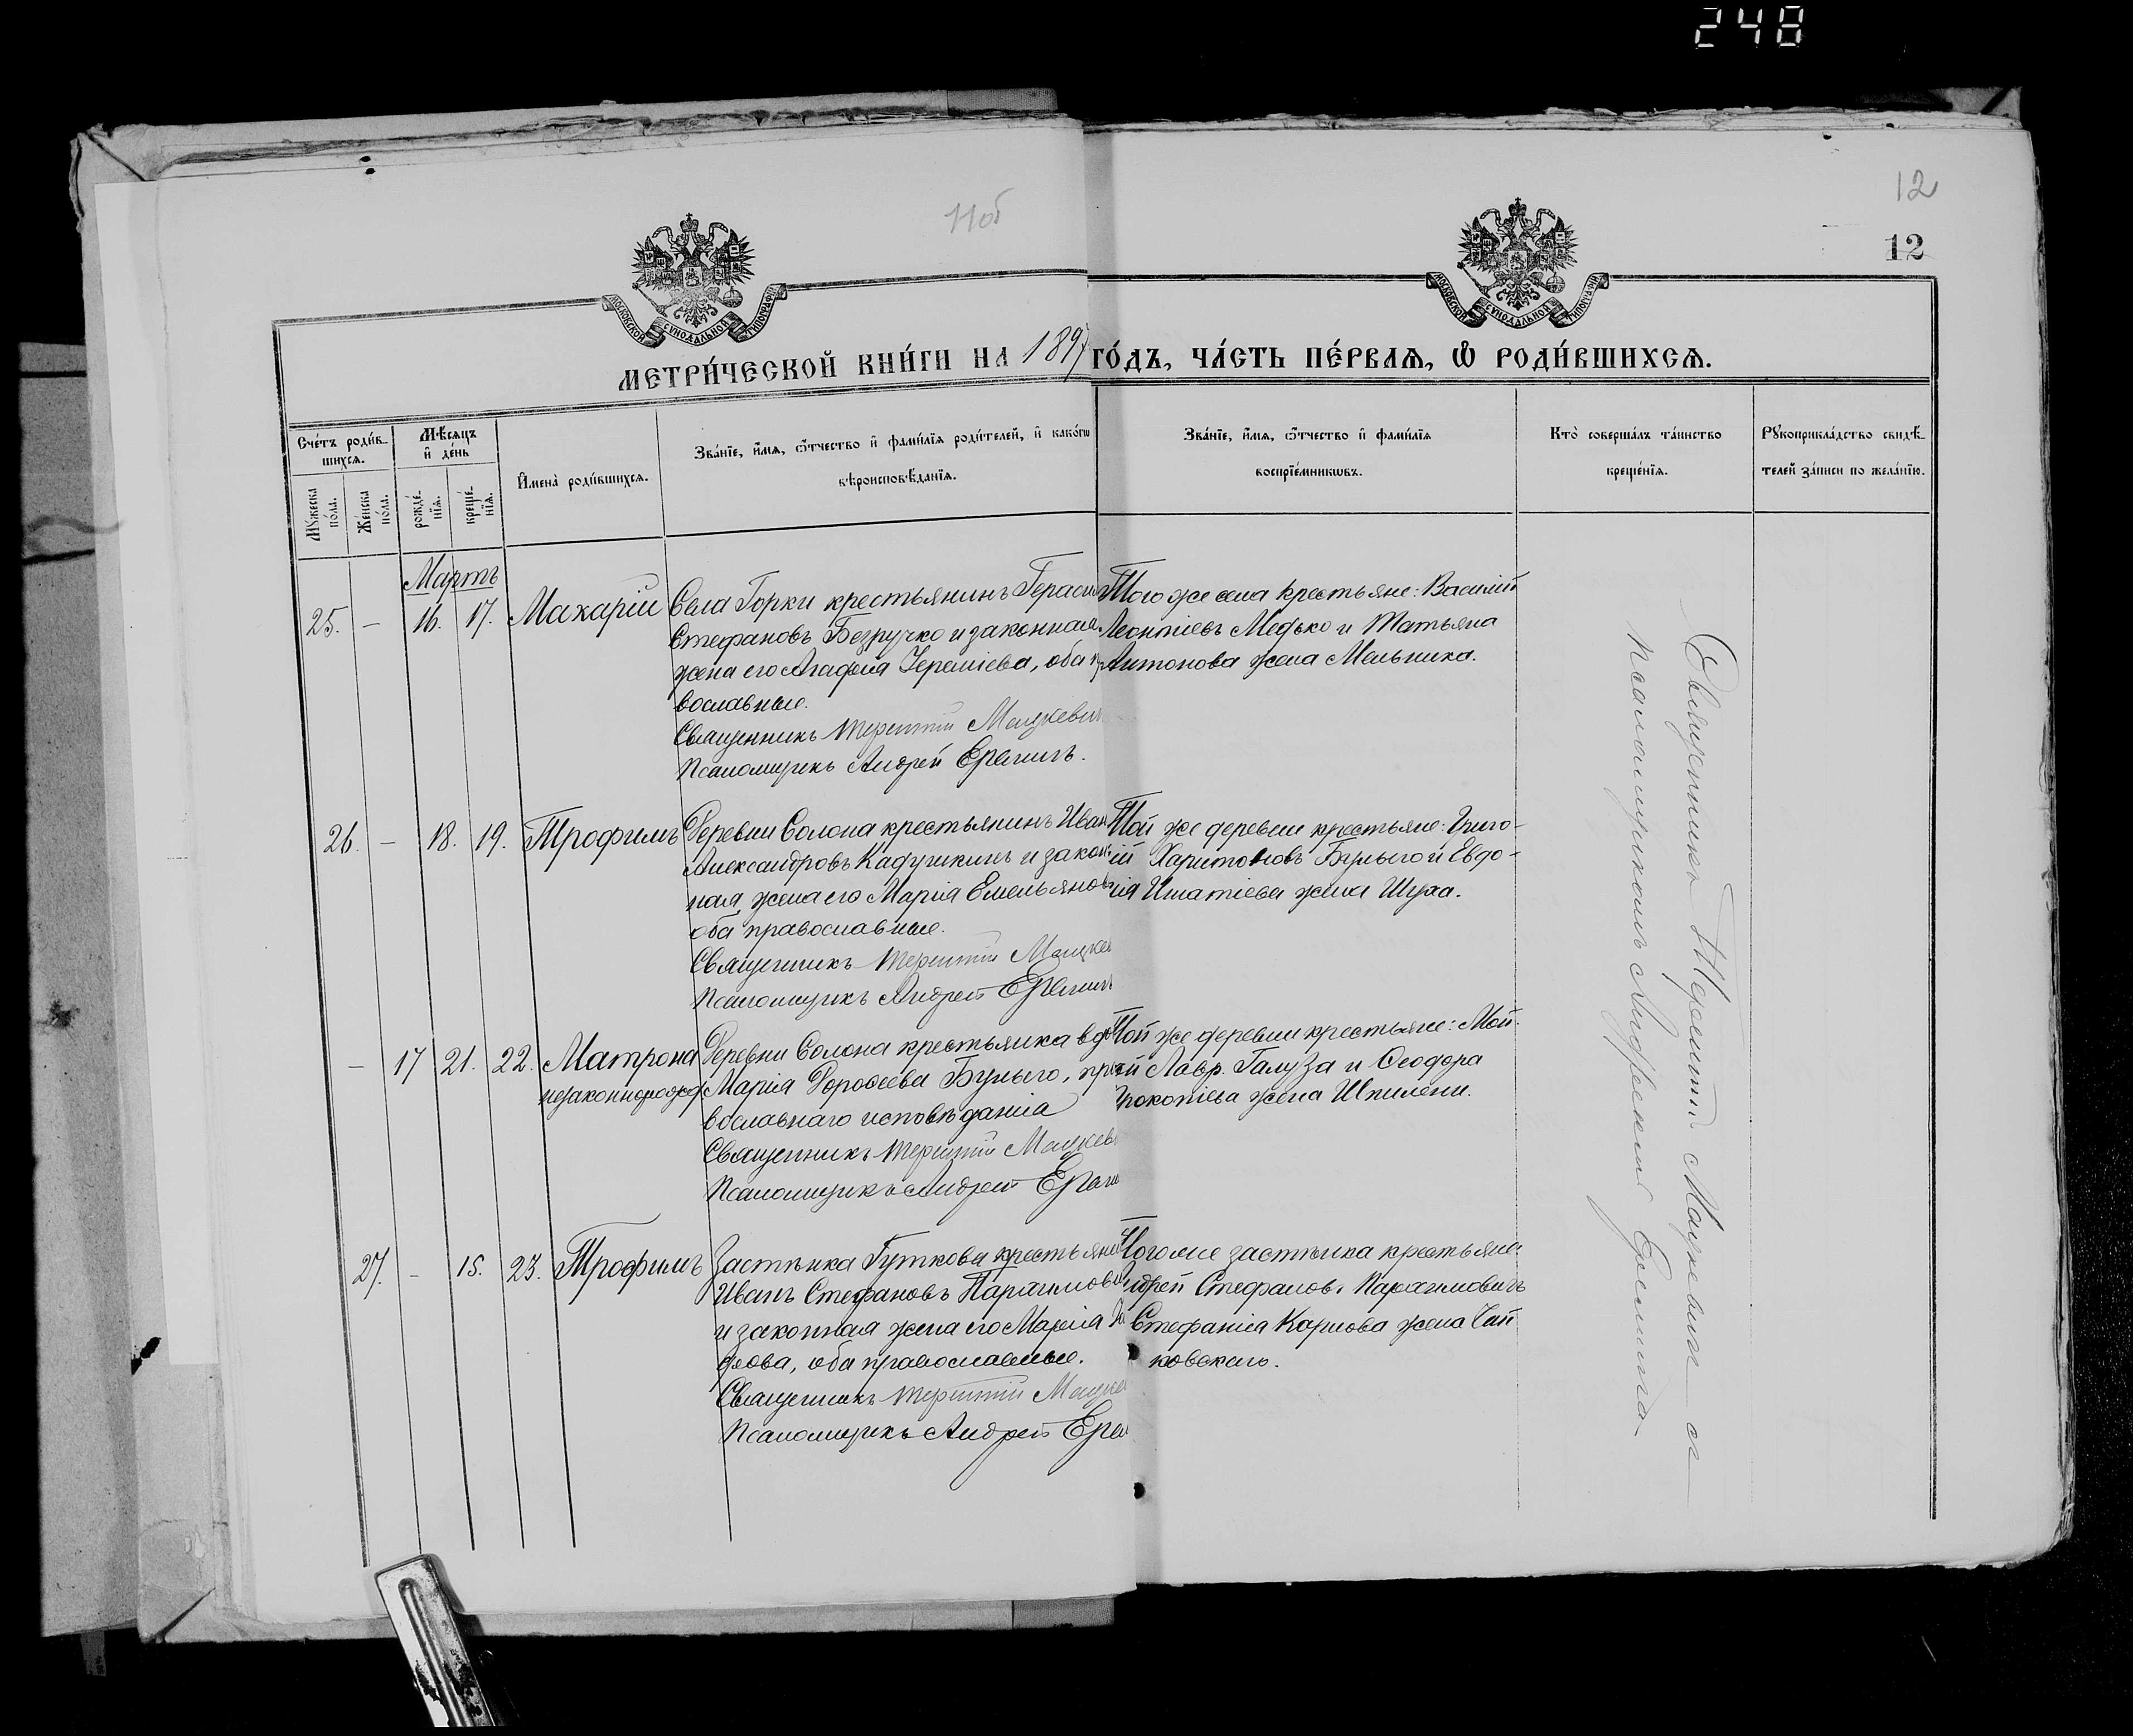 248
11об
12
12
МОСКОВСКОЙ СѴНОДАЛЬНОЙ ТИПОГРАФІИ
МОСКОВСКОЙ СѴНОДАЛЬНОЙ ТИПОГРАФІИ
МЕТРИ́ЧЕСКОЙ КНИ́ГИ НА 1897 ГО́ДЪ, ЧА́СТЬ ПЕ́РВАѦ, Ѡ РОДИ́ВШИХСѦ.
Сче́тъ роди́в-
шихсѧ.
Мѣ́сѧцъ
и҆ де́нь
Мꙋ́жеска
по́ла.
Же́нска
по́ла.
рожде́-
нїѧ.
креще́-
нїѧ.
И҆мена̀ роди́вшихсѧ.
Зва́нїе, и҆́мѧ, ѻ҆́тчество и҆ фами́лїѧ роди́телей, и҆ како́гѡ
вѣроисповѣ́данїѧ.
Зва́нїе, и҆́мѧ, ѻ҆́тчество и҆ фами́лїѧ
воспрїе́мникѡвъ.
Кто̀ соверша́лъ та́инство
креще́нїѧ.
Рꙋкоприкла́дство свидѣ́-
телей за́писи по жела́нїю.
Мартъ
25. — 16. 17. Макарій
Села Горки крестьянинъ Гераси
Стефановъ Безручко и законная
жена его Агафия Иереміева, оба
вославные.
Священникъ Терентій Мацкевич
Псаломщикъ Андрей Еремичъ.
Того же села крестьяне: Василій
Леонтіевъ Медько и Татьяна
Антонова жена Мельника.
26. — 18. 19. Трофимъ
Деревни Солона крестьянинъ Иван
Александровъ Кадушкинъ и закон
ная жена его Марія Емельянов
оба православные.
Священникъ Терентій Мацке
Псаломщикъ Андрей Еремич
Той же деревни крестьяне: Григо-
рій Харитоновъ Булыго и Евдо-
кія Игнатіева жена Шуха.
— 17 21. 22. Матрона
незаконнорожд
Деревни Солона крестьянка вдо
Марія Дороѳеева Булыго, пра
вославнаго исповѣданія
Священникъ Терентій Мацкев
Псаломщикъ Андрей Ереми
Той же деревни крестьяне: Мой-
сей Лавр. Галуза и Ѳеодора
Прокопіева жена Шпилени.
27. — 15. 23. Трофимъ
Застѣнка Гуткова крестьянин
Иванъ Стефановъ Парахимови
и законная жена его Марія
дова, оба православные.
Священникъ Терентій Мацке
Псаломщикъ Андрей Ере
Того же застѣнка крестьяне:
Андрей Стефанов. Парахимовичъ
Стефанія Карпова жена Чай
ковскаго.
Священникъ Терентій Мацкевичъ съ
псаломщикомъ Андреемъ Еремичемъ